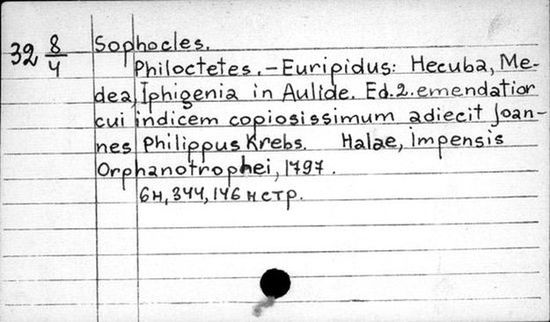 32 8/4 Sophocles.
Philoctetes.-Euripidus: Hecuba, Me-
dea, Iphigenia in Aulide. Ed.2.emendatior
cui indicem copiosissimum adiecit Joan-
nes Philippus Krebs. Halae, impensis
Orphanotrophei, 1797.
6н, 344, 146 нстр.